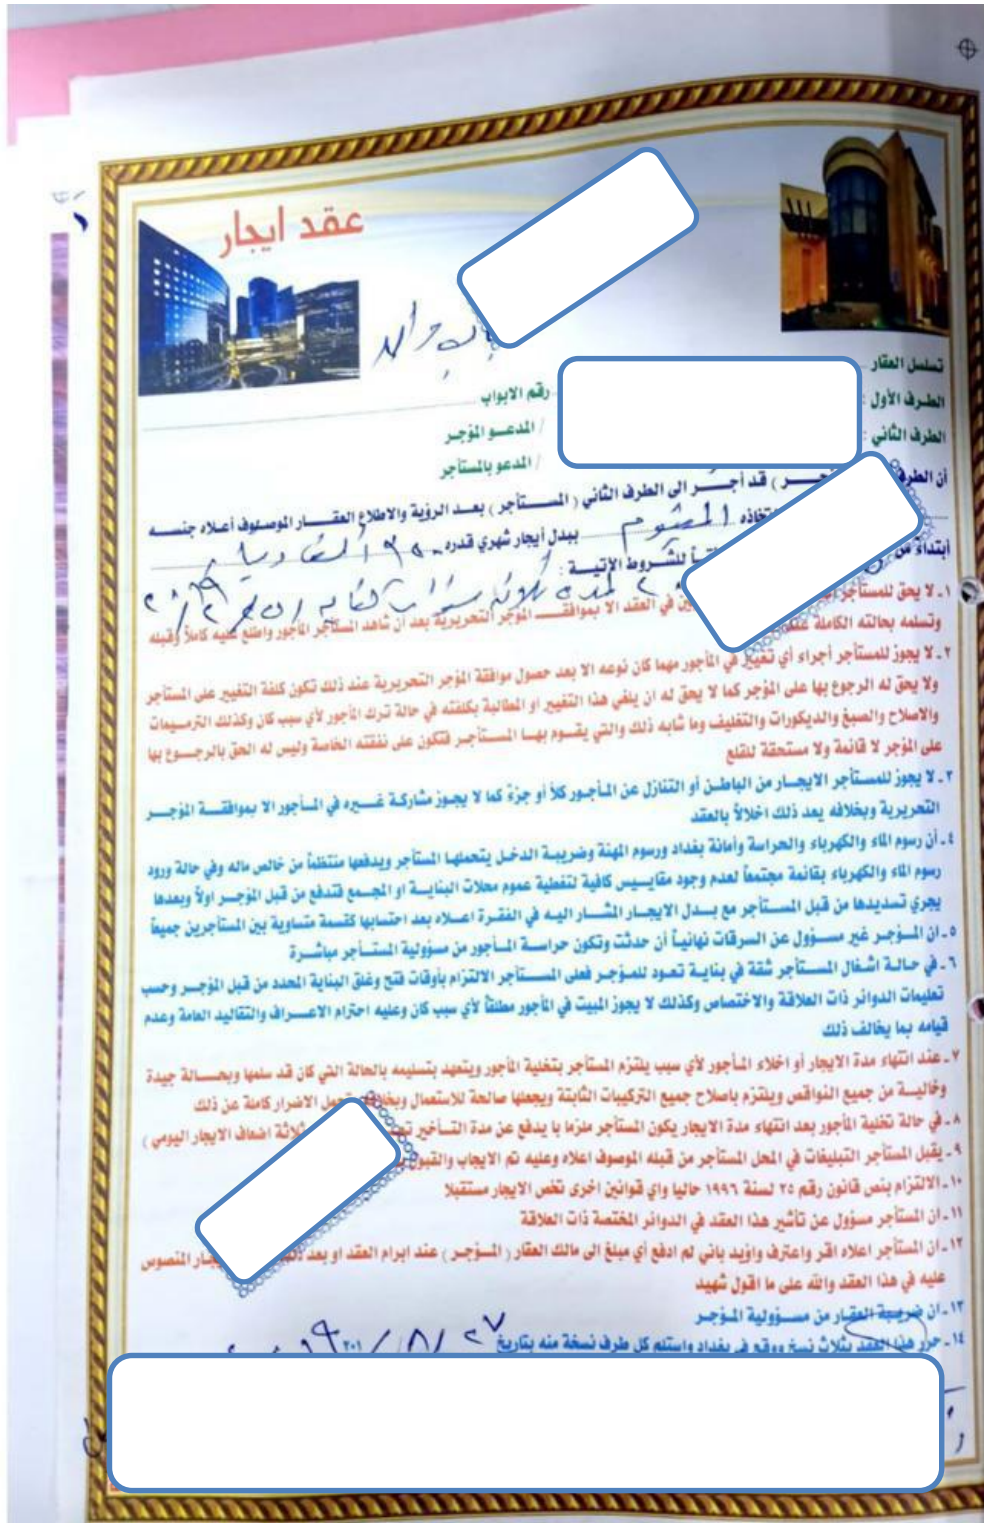 عقد ايجار
تسلسل العقار
رقم الابواب
الطرف الأول :
/ المدعو المؤجر
الطرف الثاني :
/ المدعو بالمستأجر
أن الطرف قد أجر الى الطرف الثاني ( المستأجر ) بعد الرؤية والاطلاع العقار الموصوف أعلاه جنسه
ببدل أيجار شهري قدره
أبتداء من للشروط الاتية :
١ـ لا يحق للمستأجر في العقد الا بموافقة المؤجر التحريرية بعد أن شاهد المستأجر المأجور واطلع عليه كاملاً وقبله
وتسلمه بحالته الكاملة
٢ـ لا يجوز للمستأجر أجراء أي تغيير في المأجور مهما كان نوعه الا بعد حصول موافقة المؤجر التحريرية عند ذلك تكون كلفة التغيير على المستأجر
ولا يحق له الرجوع بها على المؤجر كما لا يحق له ان يلغي هذا التغيير او المطالبة بكلفته في حالة ترك المأجور لأي سبب كان وكذلك الترميمات
والاصلاح والصبغ والديكورات والتغليف وما شابه ذلك والتي يقوم بها المستأجر فتكون على نفقته الخاصة وليس له الحق بالرجوع بها
على المؤجر لا قائمة ولا مستحقة للقلع
٣ـ لا يجوز للمستأجر الايجار من الباطن أو التنازل عن المأجور كلاً أو جزءً كما لا يجوز مشاركة غيره في المأجور الا بموافقة المؤجر
التحريرية وبخلافه يعد ذلك اخلالاً بالعقد
٤ـ أن رسوم الماء والكهرباء والحراسة وأمانة بغداد ورسوم المهنة وضريبة الدخل يتحملها المستأجر ويدفعها منتظماً من خالص ماله وفي حالة ورود
رسوم الماء والكهرباء بقائمة مجتمعاً لعدم وجود مقاييس كافية لتغطية عموم محلات البناية او المجمع فتدفع من قبل المؤجر اولاً وبعدها
يجري تسديدها من قبل المستأجر مع بدل الايجار المشار اليه في الفقرة اعلاه بعد احتسابها كقسمة متساوية بين المستأجرين جميعاً
٥ـ ان المؤجر غير مسؤول عن السرقات نهائياً أن حدثت وتكون حراسة المأجور من مسؤولية المستأجر مباشرة
٦ـ في حالة اشغال المستأجر شقة في بناية تعود للمؤجر فعلى المستأجر الالتزام بأوقات فتح وغلق البناية المحدد من قبل المؤجر وحسب
تعليمات الدوائر ذات العلاقة والاختصاص وكذلك لا يجوز المبيت في المأجور مطلقاً لأي سبب كان وعليه احترام الاعراف والتقاليد العامة وعدم
قيامه بما يخالف ذلك
٧ـ عند انتهاء مدة الايجار أو اخلاء المأجور لأي سبب يلتزم المستأجر بتخلية المأجور ويتعهد بتسليمه بالحالة التي كان قد سلمها وبحالة جيدة
وخالية من جميع النواقص ويلتزم باصلاح جميع التركيبات الثابتة ويجعلها صالحة للاستعمال الاضرار كاملة عن ذلك
٨ـ في حالة تخلية المأجور بعد انتهاء مدة الايجار يكون المستأجر ملزما با يدفع عن مدة التأخير ثلاثة اضعاف الايجار اليومي )
٩ـ يقبل المستأجر التبليغات في المحل المستأجر من قبله الموصوف اعلاه وعليه تم الايجاب والقبول
١٠ـ الالتزام بنص قانون رقم ٢٥ لسنة ١٩٩٦ حاليا واي قوانين اخرى تخص الايجار مستقبلا
١١ـ ان المستأجر مسؤول عن تأشير هذا العقد في الدوائر المختصة ذات العلاقة
١٢ـ ان المستأجر اعلاه اقر واعترف واؤيد باني لم ادفع أي مبلغ الى مالك العقار ( المؤجر ) عند ابرام العقد او بعد المنصوص
عليه في هذا العقد والله على ما اقول شهيد
١٣ـ ان ضريبة العقار من مسؤولية المؤجر
١٤ـ حرر هذا العقد بثلاث نسخ ووقع في بغداد واستلم كل طرف نسخة منه بتاريخ ٢٧ / ٨ / ٢٠١